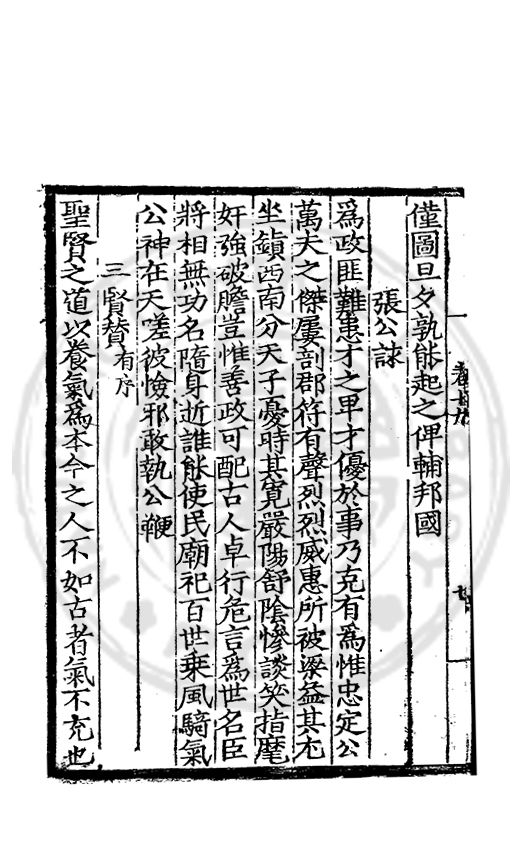 僅圖旦夕孰能起之俾輔邦國
張公詠
爲政匪難患才之卑才優於事乃克有爲惟忠定公
萬夫之傑屢剖郡符有聲烈烈威惠所被梁益其尤
坐鎮西南分天子憂時其寬嚴陽舒陰慘談笑指麾
奸強破膽豈惟善政可配古人卓行危言爲世名臣
將相無功名隨身逝誰能使民廟祀百世乘風騎氣
公神在天嗟彼憸邪敢執公鞭
三賢贊有序
聖賢之道以養氣爲本今之人不如古者氣不充也